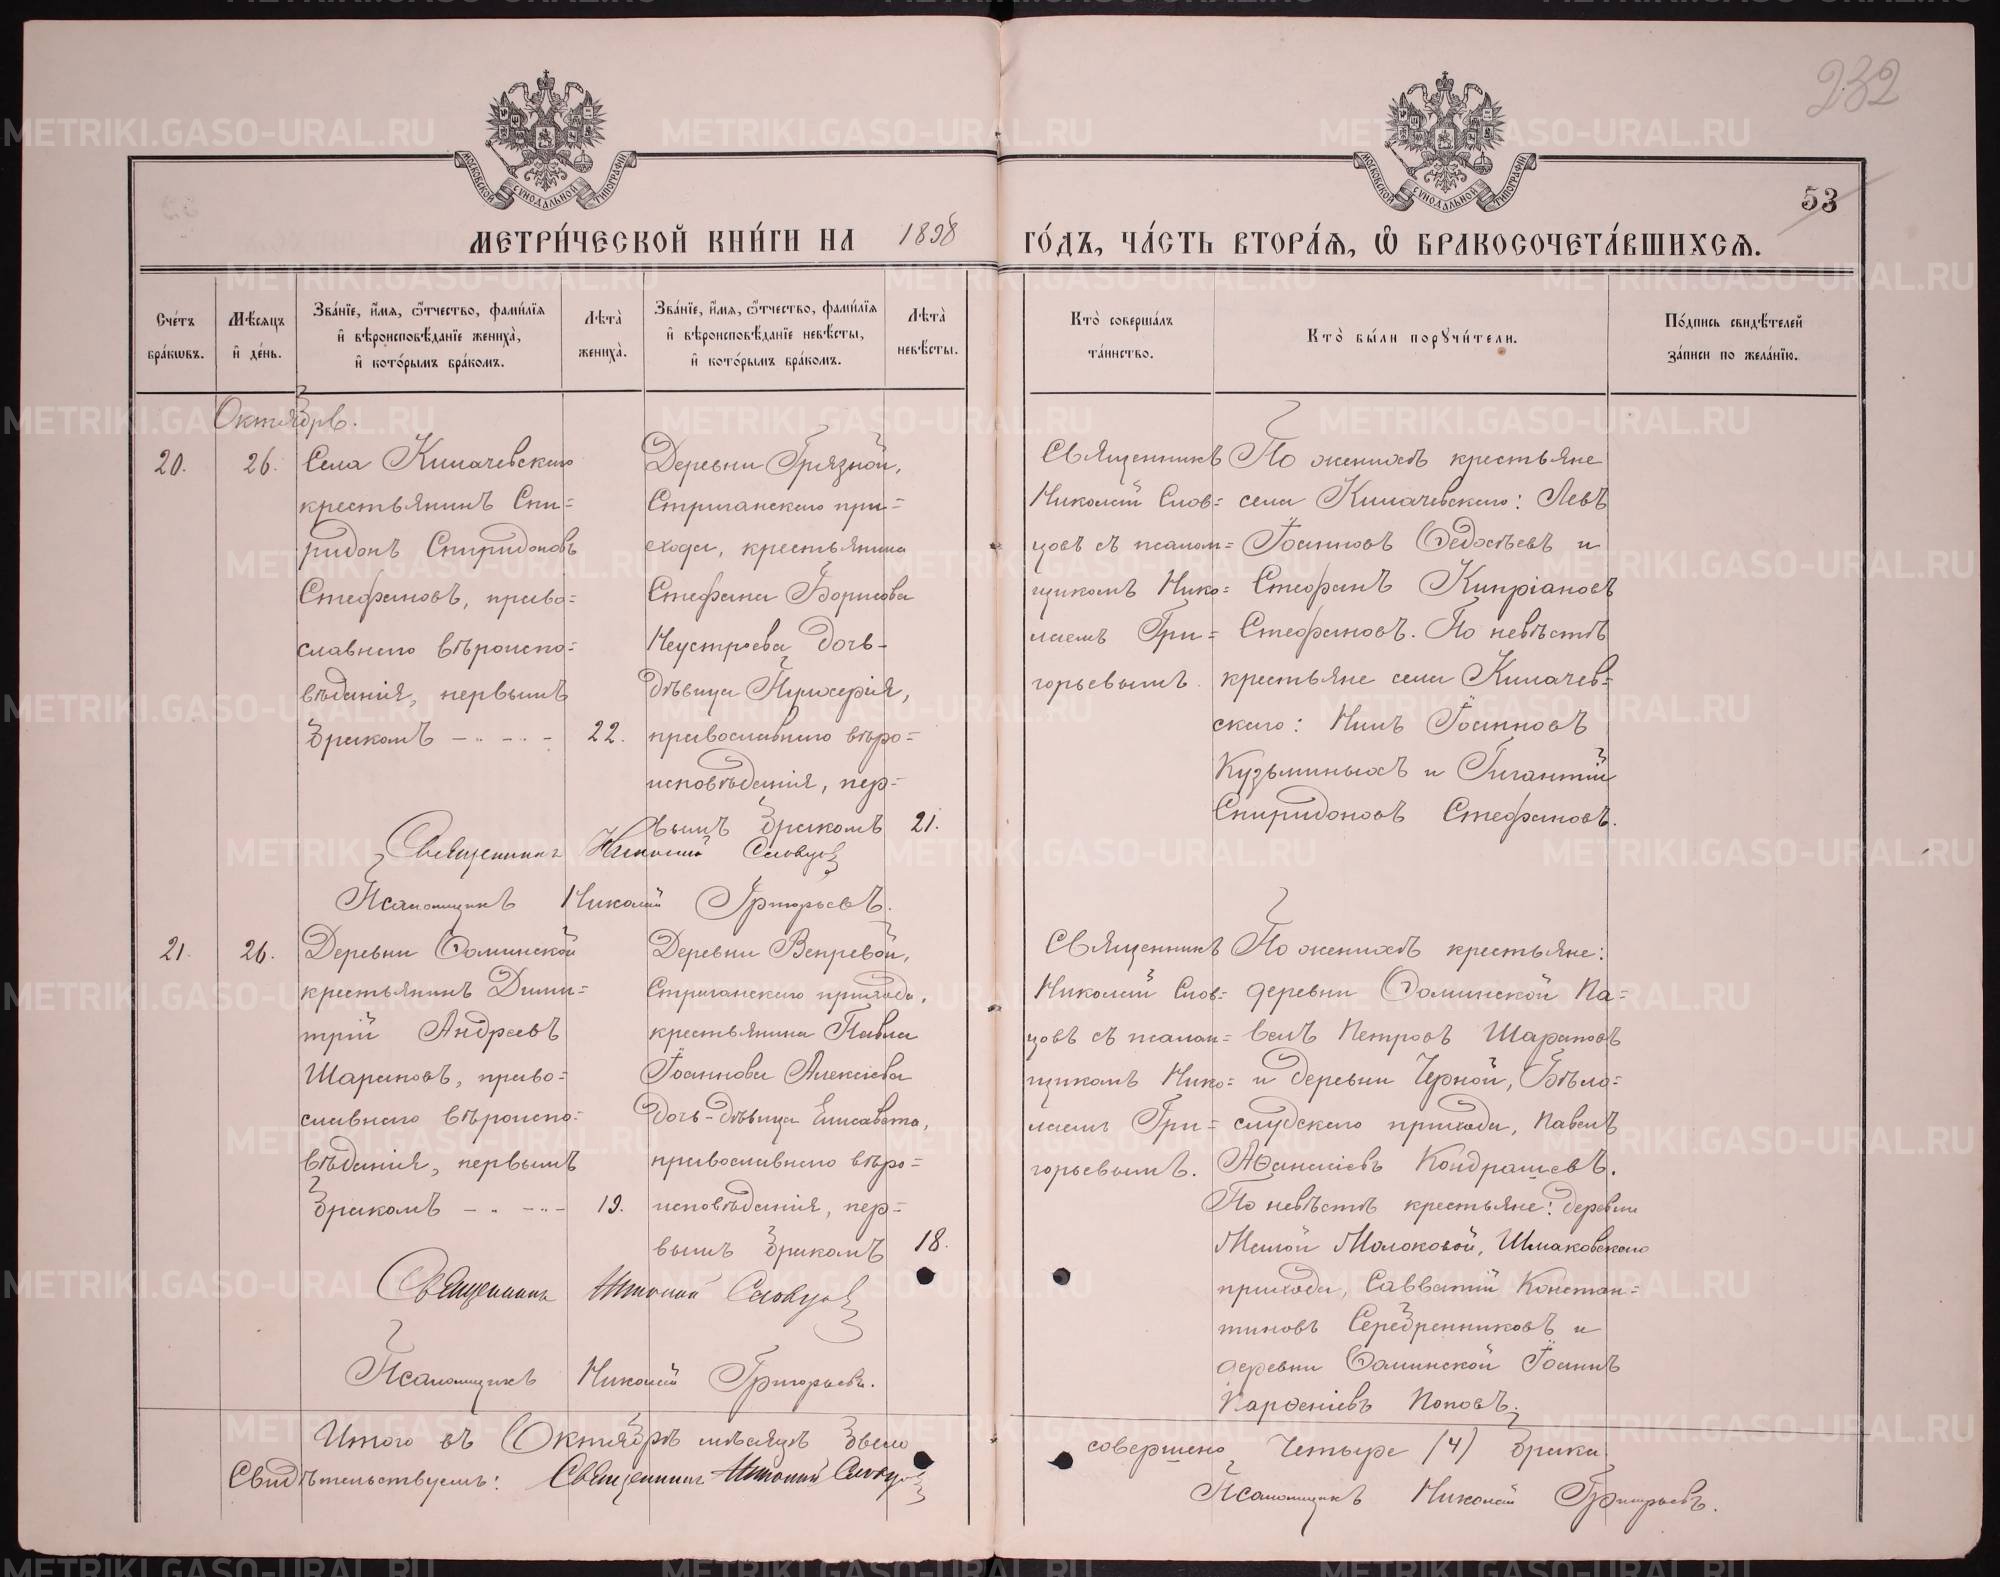 232
53
МОСКОВСКОЙ СУНОДАЛЬНОЙ ТИПОГРАФІИ
МОСКОВСКОЙ СУНОДАЛЬНОЙ ТИПОГРАФІИ
МЕТРИ́ЧЕСКОЙ КНИ́ГИ НА 1898 ГО́ДЪ, ЧА́СТЬ ВТОРА́Я, Ѽ БРАКОСОЧЕТА́ВШИХСЯ.
Сче́тъ бра́кѡвъ.
Мѣ́сяцъ и҆ де́нь.
Зва́нїе, и҆́мя, ѻ҆́тчество, фами́лїя и҆ вѣроисповѣ́данїе жениха̀, и҆ кото́рымъ бра́комъ.
Лѣта̀ жениха̀.
Зва́нїе, и҆́мя, ѻ҆́тчество, фами́лїя и҆ вѣроисповѣ́данїе невѣ́сты, и҆ кото́рымъ бра́комъ.
Лѣта̀ невѣ́сты.
Кто̀ соверша́лъ та́инство.
Кто̀ бы́ли порꙋчи́тели.
По́дпись свидѣ́телей за́писи по жела́нїю.
Октябрь.
20.
26.
Села Килачевскаго
крестьянинъ Спи=
ридонъ Спиридоновъ
Стефановъ, право=
славнаго вѣроиспо=
вѣданія, первымъ
бракомъ
22.
Деревни Грязной,
Стриганскаго при=
хода, крестьянина
Стефана Борисова
Неустроева дочь-
дѣвица Пульхерія,
православнаго вѣро=
исповѣданія, пер=
вымъ бракомъ
21.
Священникъ
Николай Слов=
цовъ съ псалом=
щикомъ Нико=
лаемъ Гри=
горьевымъ.
По женихѣ крестьяне
села Килачевскаго: Левъ
Іоанновъ Ѳедосѣевъ и
Стефанъ Кипріановъ
Стефановъ. По невѣстѣ
крестьяне села Килачев=
скаго: Нилъ Іоанновъ
Кузьминыхъ и Гигантій
Спиридоновъ Стефановъ.
Священникъ Николай Словцовъ
Псаломщикъ Николай Григорьевъ.
21.
26.
Деревни Ѳоминской
крестьянинъ Дими=
трій Андреевъ
Шараповъ, право=
славнаго вѣроиспо=
вѣданія, первымъ
бракомъ
19.
Деревни Вепревой,
Стриганскаго прихода,
крестьянина Павла
Іоаннова Алексіева
дочь-дѣвица Елисавета,
православнаго вѣро=
исповѣданія, пер=
вымъ бракомъ
18.
Священникъ
Николай Слов=
цовъ съ псалом=
щикомъ Нико=
лаемъ Гри=
горьевымъ.
По женихѣ крестьяне:
деревни Ѳоминской Па=
велъ Петровъ Шараповъ
и деревни Черной, Бѣло=
слудскаго прихода, Павелъ
Аѳанасіевъ Кондрашевъ.
По невѣстѣ крестьяне: деревни
Малой Молоковой, Шмаковскаго
прихода, Савватій Констан=
тиновъ Серебренниковъ и
деревни Ѳоминской Іоаннъ
Парѳеніевъ Поповъ.
Священникъ Николай Словцовъ
Псаломщикъ Николай Григорьевъ.
Итого въ Октябрѣ мѣсяцѣ было совершено четыре (4) брака
Свидѣтельствуемъ: Священникъ Николай Словцовъ
Псаломщикъ Николай Григорьевъ.
METRIKI.GASO-URAL.RU